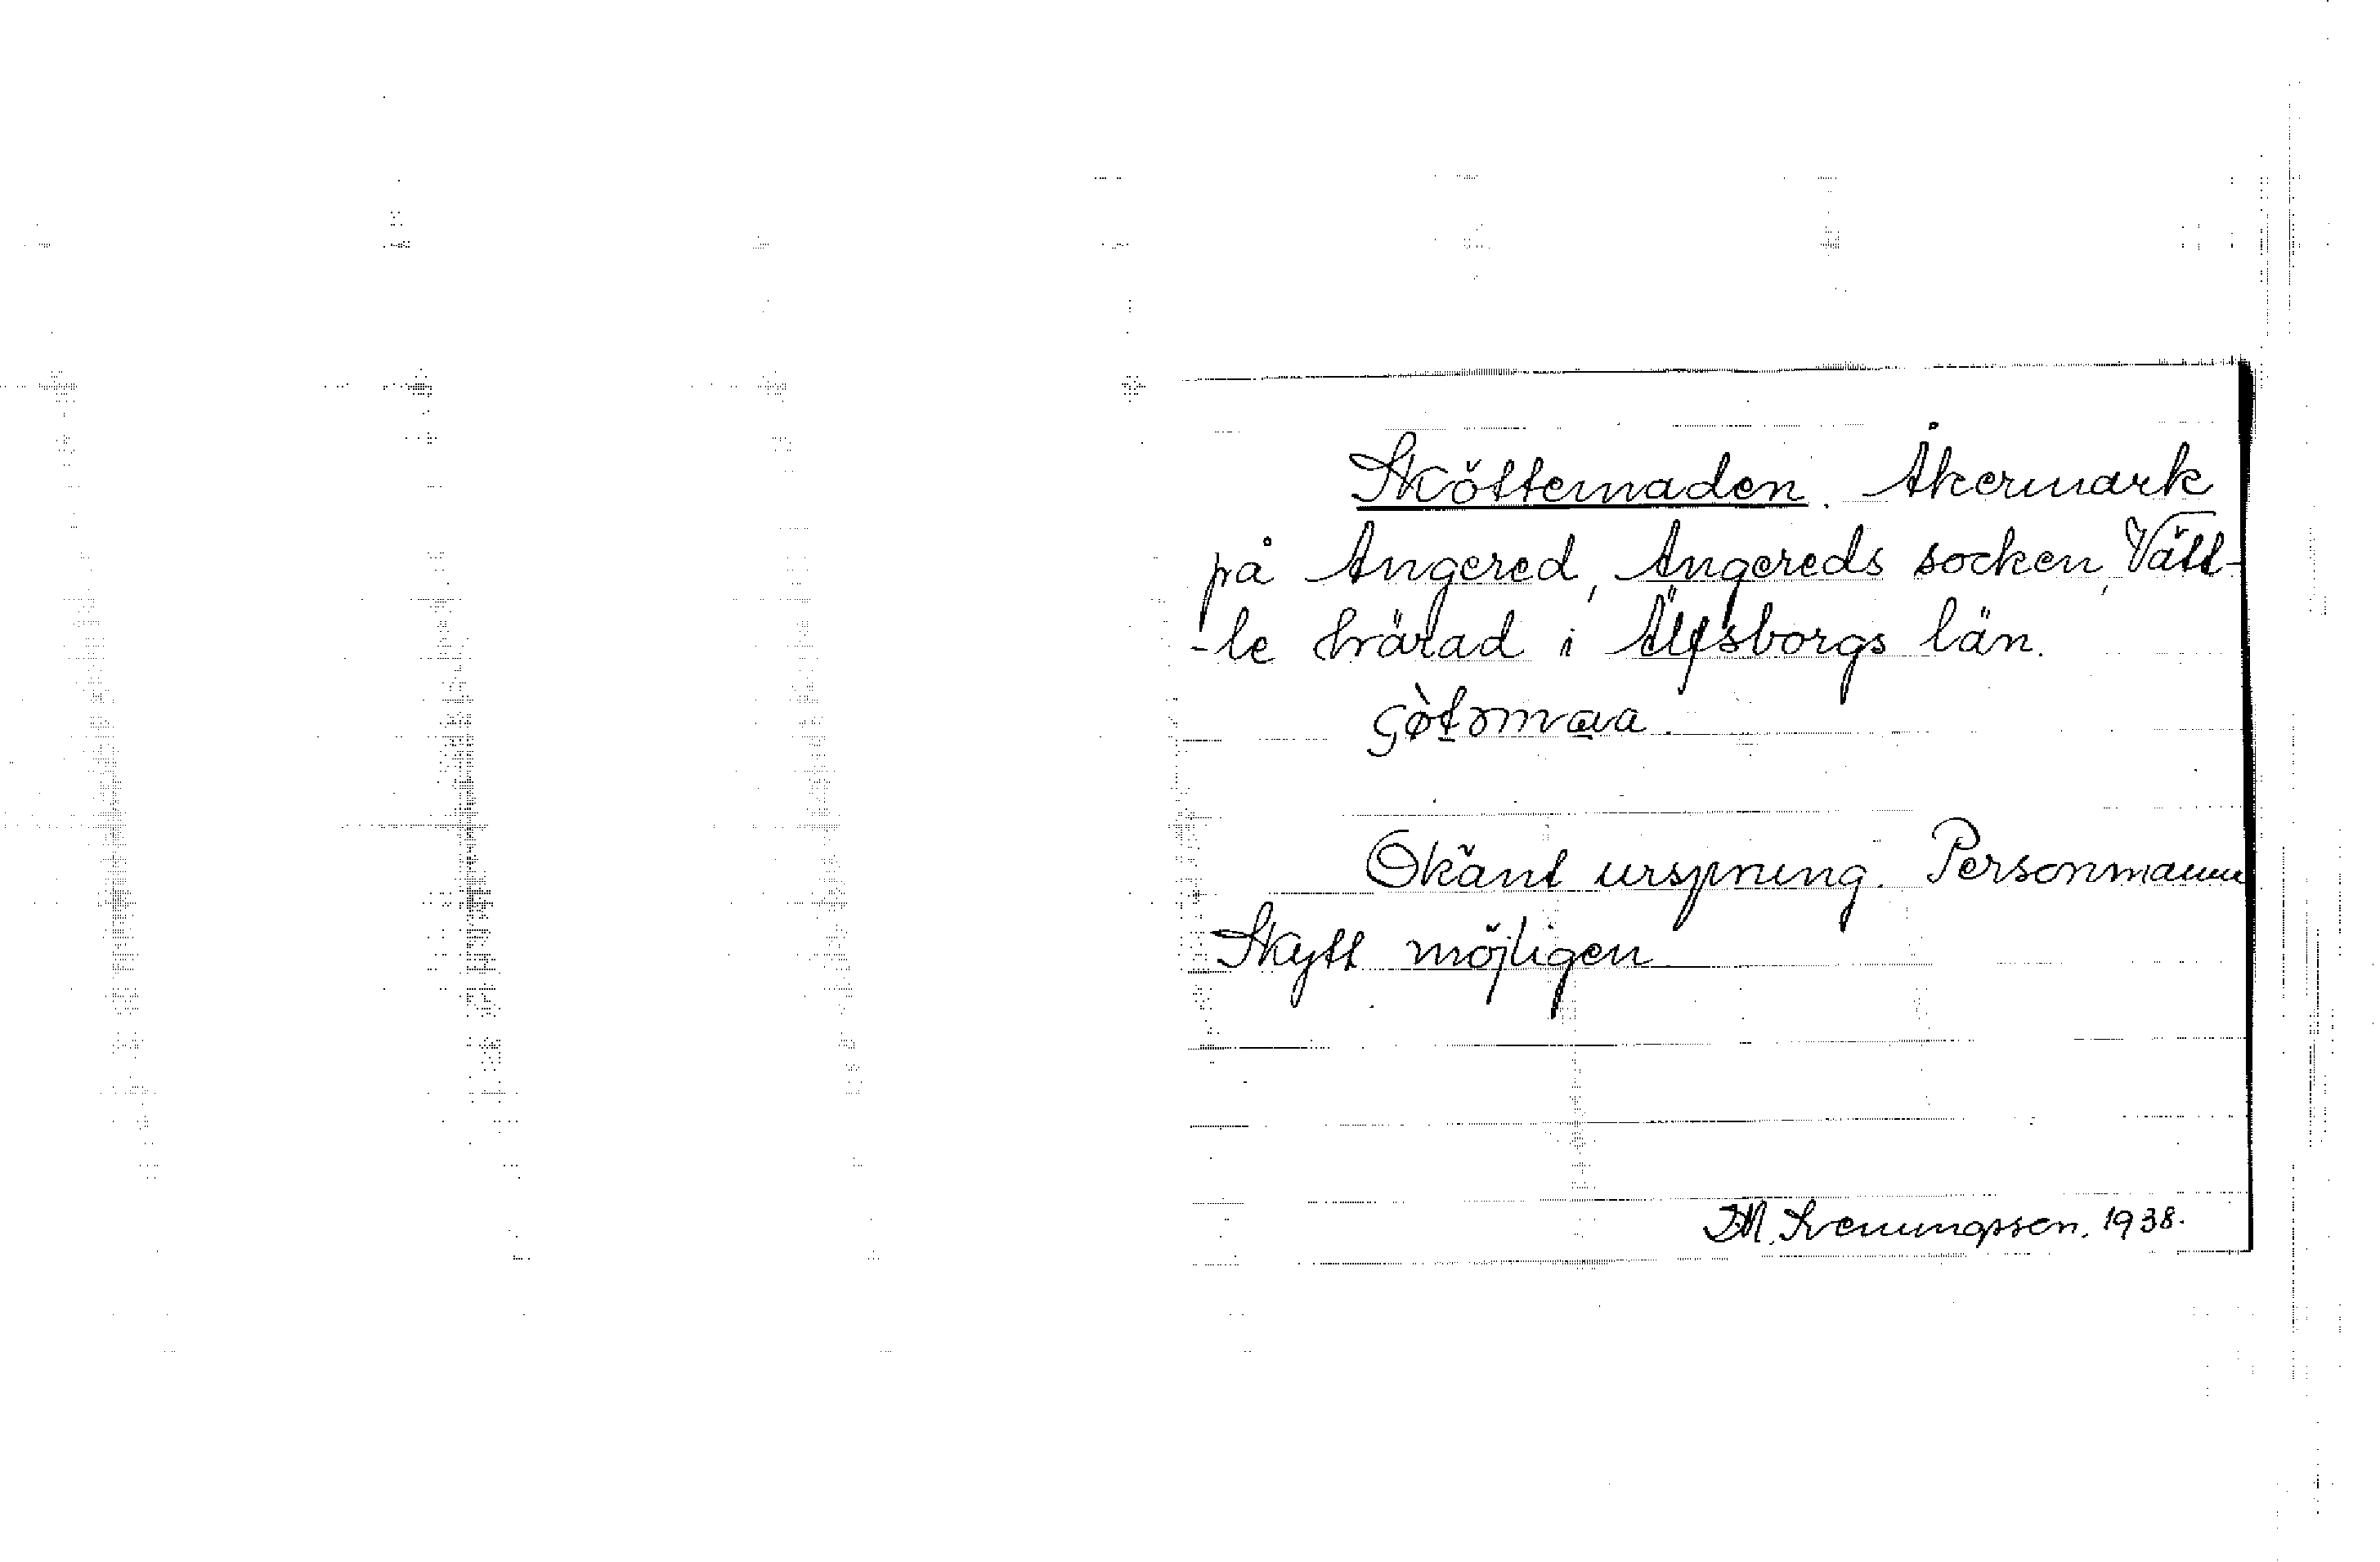 Sköttemaden. Åkermark
på Angered, Angereds socken, Vätt-
-le härad i Älfsborgs län.
Okänt ursprung. Personnamn
Skytt möjligen
1938.